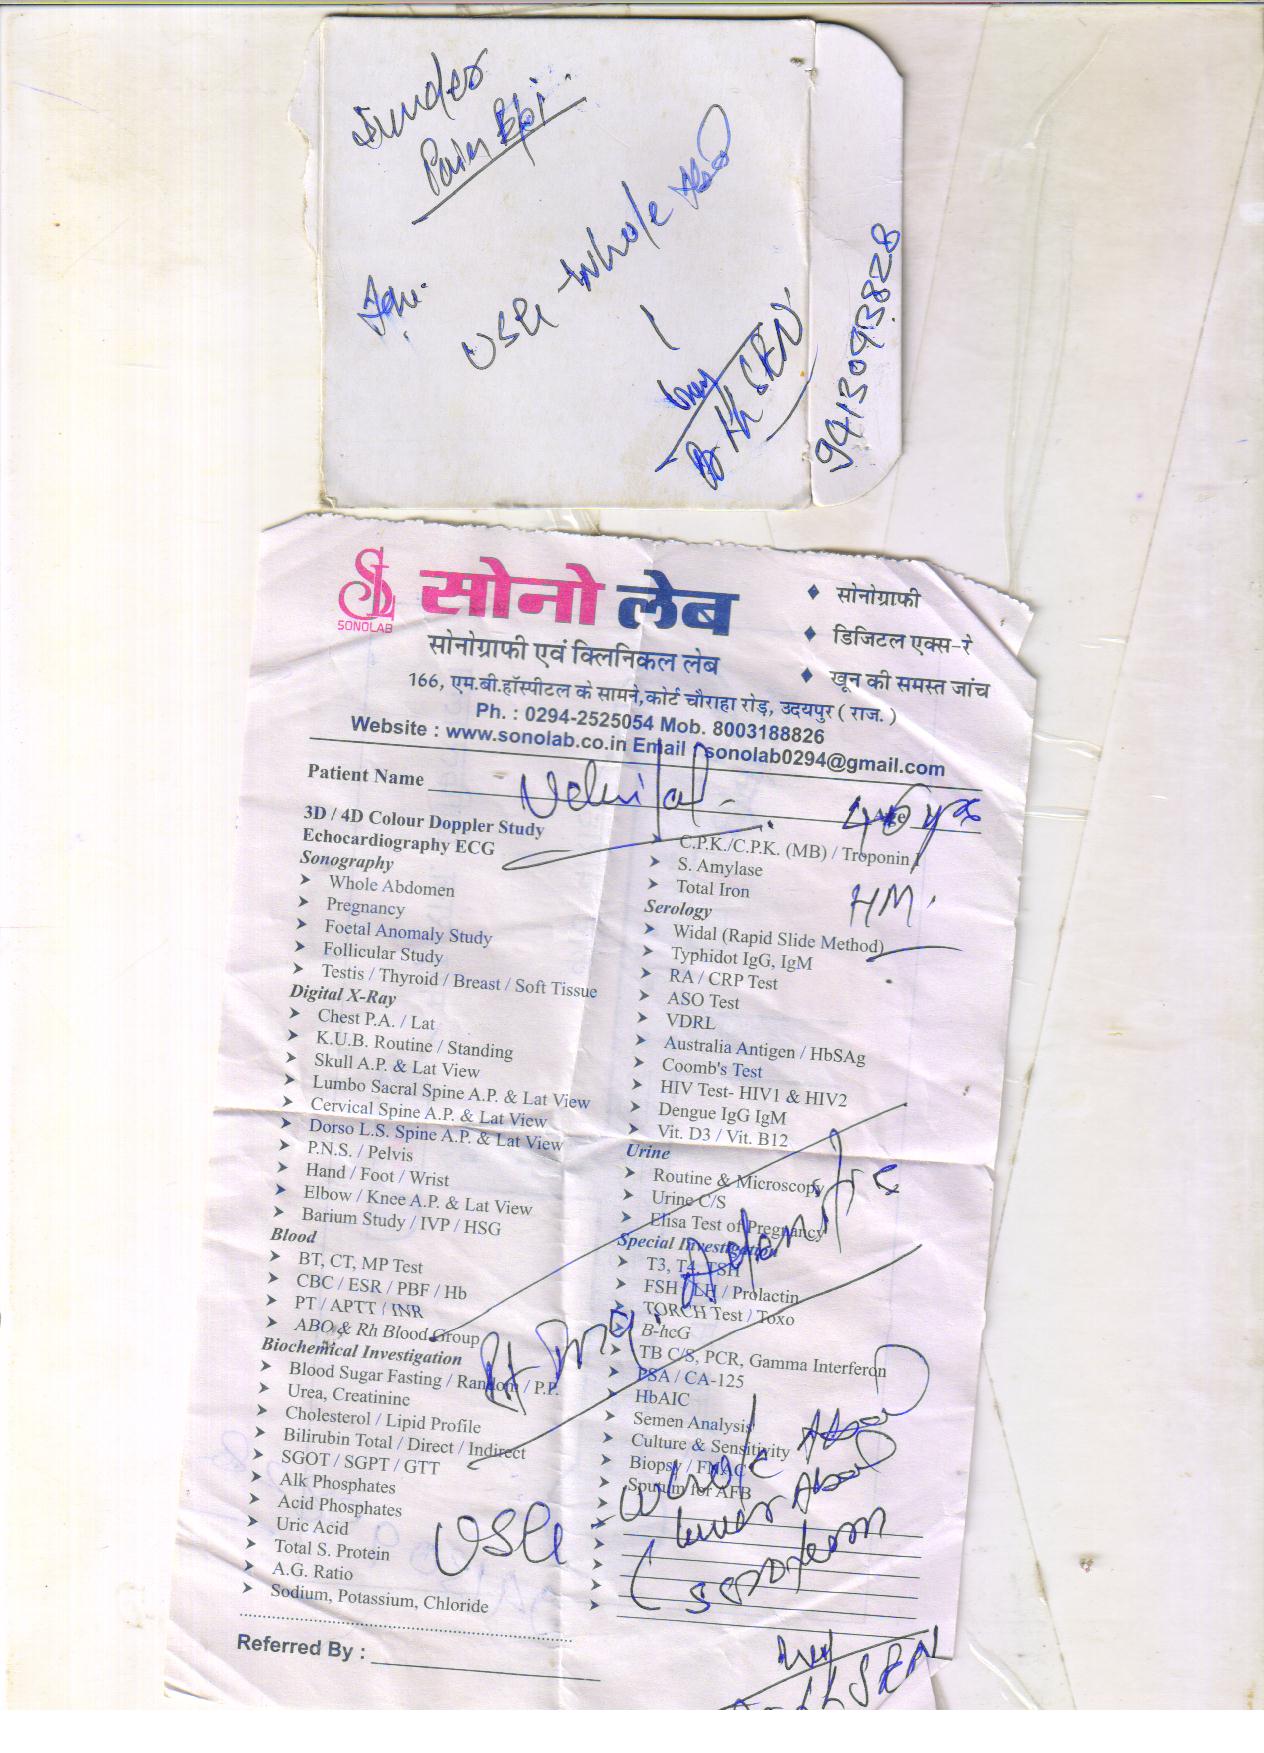 Sunder
Pain Epi..
Adv.
USG Whole Abd
9413093828
SL
SONOLAB
सोनो लेब
सोनोग्राफी एवं क्लिनिकल लेब
♦ सोनोग्राफी
♦ डिजिटल एक्स-रे
♦ खून की समस्त जांच
166, एम.बी.हॉस्पीटल के सामने,कोर्ट चौराहा रोड़, उदयपुर ( राज. )
Ph. : 0294-2525054 Mob. 8003188826
Website : www.sonolab.co.in Email : sonolab0294@gmail.com
Patient Name
Age 46 yrs
HM.
3D / 4D Colour Doppler Study
Echocardiography ECG
Sonography
➤ Whole Abdomen
➤ Pregnancy
➤ Foetal Anomaly Study
➤ Follicular Study
➤ Testis / Thyroid / Breast / Soft Tissue
Digital X-Ray
➤ Chest P.A. / Lat
➤ K.U.B. Routine / Standing
➤ Skull A.P. & Lat View
➤ Lumbo Sacral Spine A.P. & Lat View
➤ Cervical Spine A.P. & Lat View
➤ Dorso L.S. Spine A.P. & Lat View
➤ P.N.S. / Pelvis
➤ Hand / Foot / Wrist
➤ Elbow / Knee A.P. & Lat View
➤ Barium Study / IVP / HSG
Blood
➤ BT, CT, MP Test
➤ CBC / ESR / PBF / Hb
➤ PT / APTT / INR
➤ ABO & Rh Blood Group
Biochemical Investigation
➤ Blood Sugar Fasting / Random / P.P.
➤ Urea, Creatinine
➤ Cholesterol / Lipid Profile
➤ Bilirubin Total / Direct / Indirect
➤ SGOT / SGPT / GTT
➤ Alk Phosphates
➤ Acid Phosphates
➤ Uric Acid
➤ Total S. Protein
➤ A.G. Ratio
➤ Sodium, Potassium, Chloride
➤ C.P.K./C.P.K. (MB) / Troponin I
➤ S. Amylase
➤ Total Iron
Serology
➤ Widal (Rapid Slide Method)
➤ Typhidot IgG, IgM
➤ RA / CRP Test
➤ ASO Test
➤ VDRL
➤ Australia Antigen / HbSAg
➤ Coomb's Test
➤ HIV Test- HIV1 & HIV2
➤ Dengue IgG IgM
➤ Vit. D3 / Vit. B12
Urine
➤ Routine & Microscopy
➤ Urine C/S
➤ Elisa Test of Pregnancy
Special Investigation
➤ T3, T4, TSH
➤ FSH / LH / Prolactin
➤ TORCH Test / Toxo
➤ B-hcG
➤ TB C/S, PCR, Gamma Interferon
➤ PSA / CA-125
➤ HbAIC
➤ Semen Analysis
➤ Culture & Sensitivity
➤ Biopsy / FNAC
➤ Sputum for AFB
USG Whole Abd
Lower Abd
Referred By :